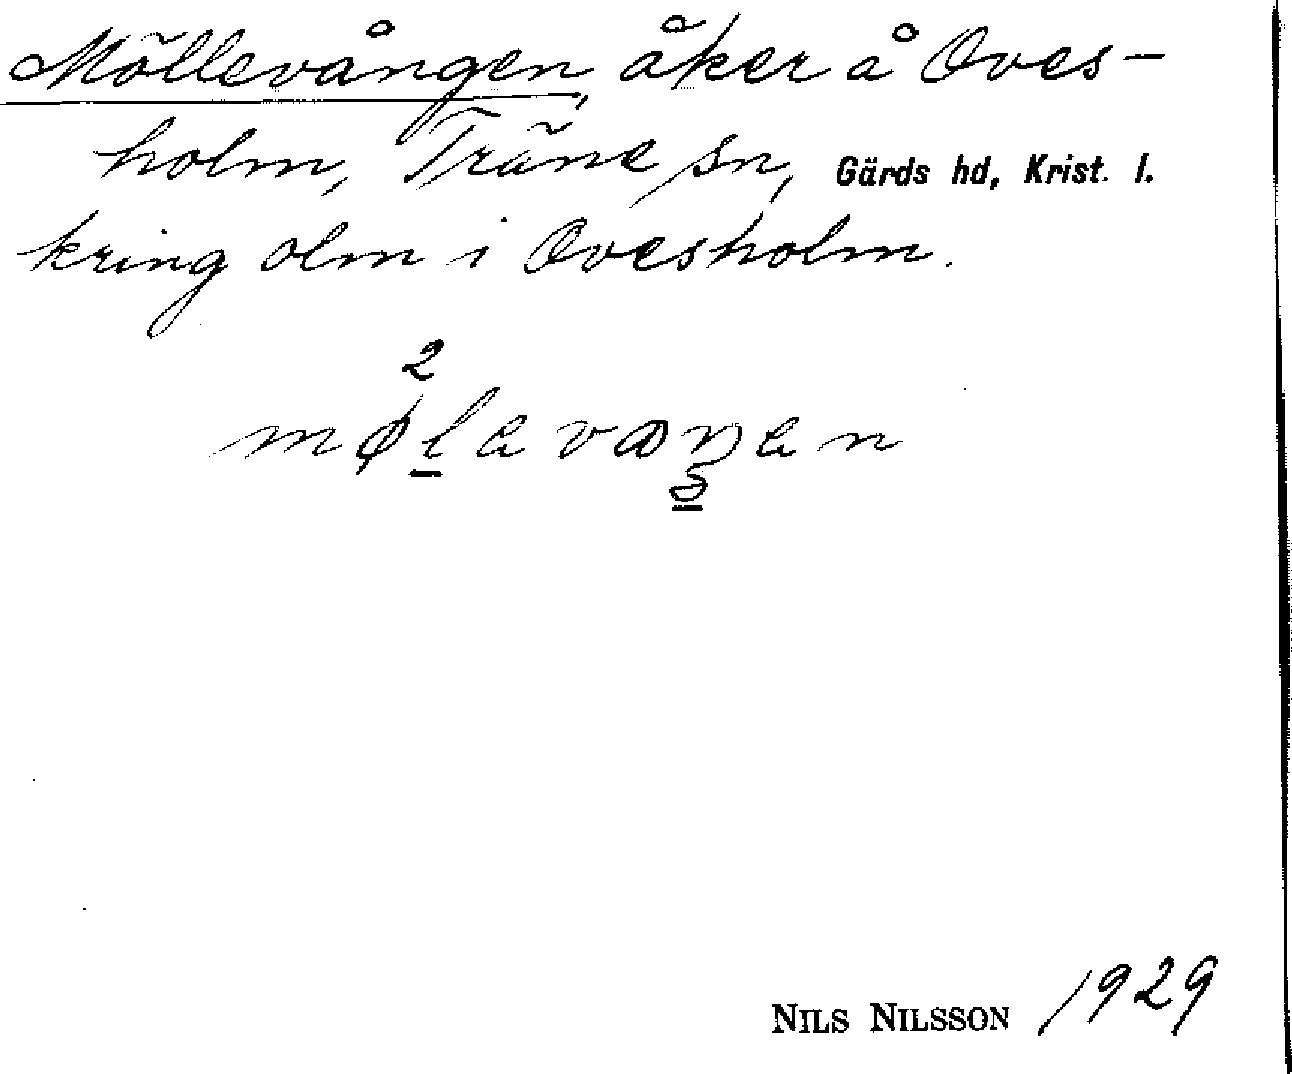 Möllevången, åker å Oves-
holm, Träne sn, Gärds hd, Krist. l.
kring olm i Ovesholm.
2
møla vaŋan
NILS NILSSON 1929